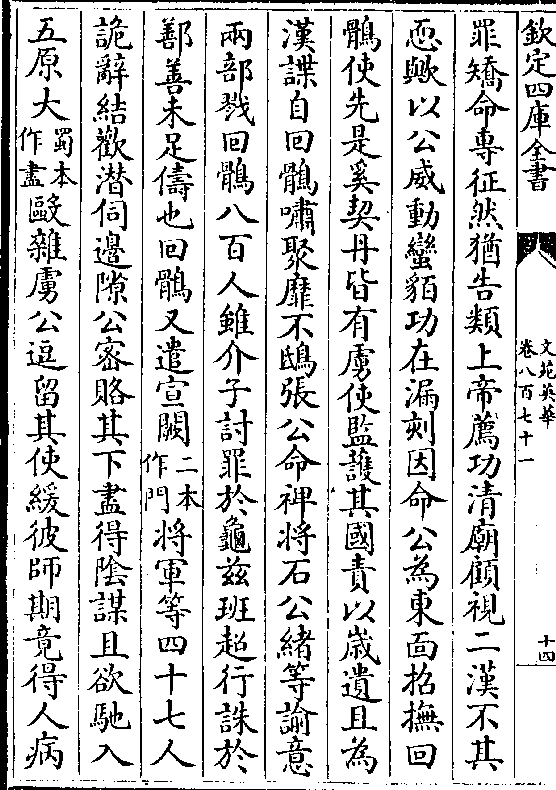 欽定四庫全書
文苑英華
卷八百七十一
十四
罪矯命専征然猶告類上帝薦功清廟顧視二漢不其
恧歟以公威動蠻貊功在漏刻因命公為東面招撫回
鶻使先是奚契丹皆有虜使監護其國責以歲遺且為
漢諜自回鶻嘯聚靡不鴟張公命裨將石公緒等諭意
兩部戮回鶻八百人雖介子討罪於龜兹班超行誅於
鄯善未足儔也回鶻又遣宣闕二本作門將軍等四十七人
詭辭結歡潜伺邊隙公密賂其下盡得陰謀且欲馳入
五原大蜀本作盡敺雜虜公逗留其使緩彼師期竟得人病